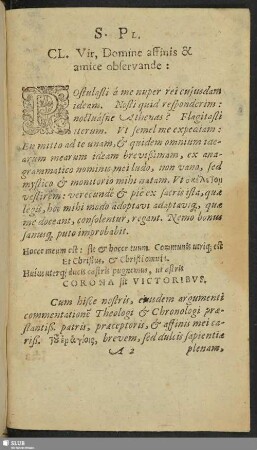 S. PL.
CL. Vir, Domine affinis &
amice observande:
POstulasti á me nuper rei cujusdam
ideam. Nosti quid responderim:
noctuásne Athenas? Flagitasti
iterum. Vt semel me expediam:
En mitto ad te unam, & quidem omnium
mearum ideam brevissimam, ex ana-
grammatico nominis mei ludo, non vano, sed
mystico & monitorio mihi natam.
vestirem: verecundè & piè ex sacris ista, quæ
legis, hoc mihi modo adoptavi adaptavíq, quæ
me doceant, consolentur, regant. Nemo bonus
sanusq; puto improbabit.
Hocce meum est: sit & hocce tuum. Communis utriq; est
Et Christus, & Christi omnia.
Huius uterq; ducis castris pugnemus, ut astris
CORONA sit VICTORIBVS.
Cum hisce nostris, ejusdem argumenti
commentationē Theologi & Chronologi præ-
stantiss. patris, præceptoris, & affinis mei ca-
riss. brevem, sed dulcis sapientiæ
A 2 plenam,
SLUB